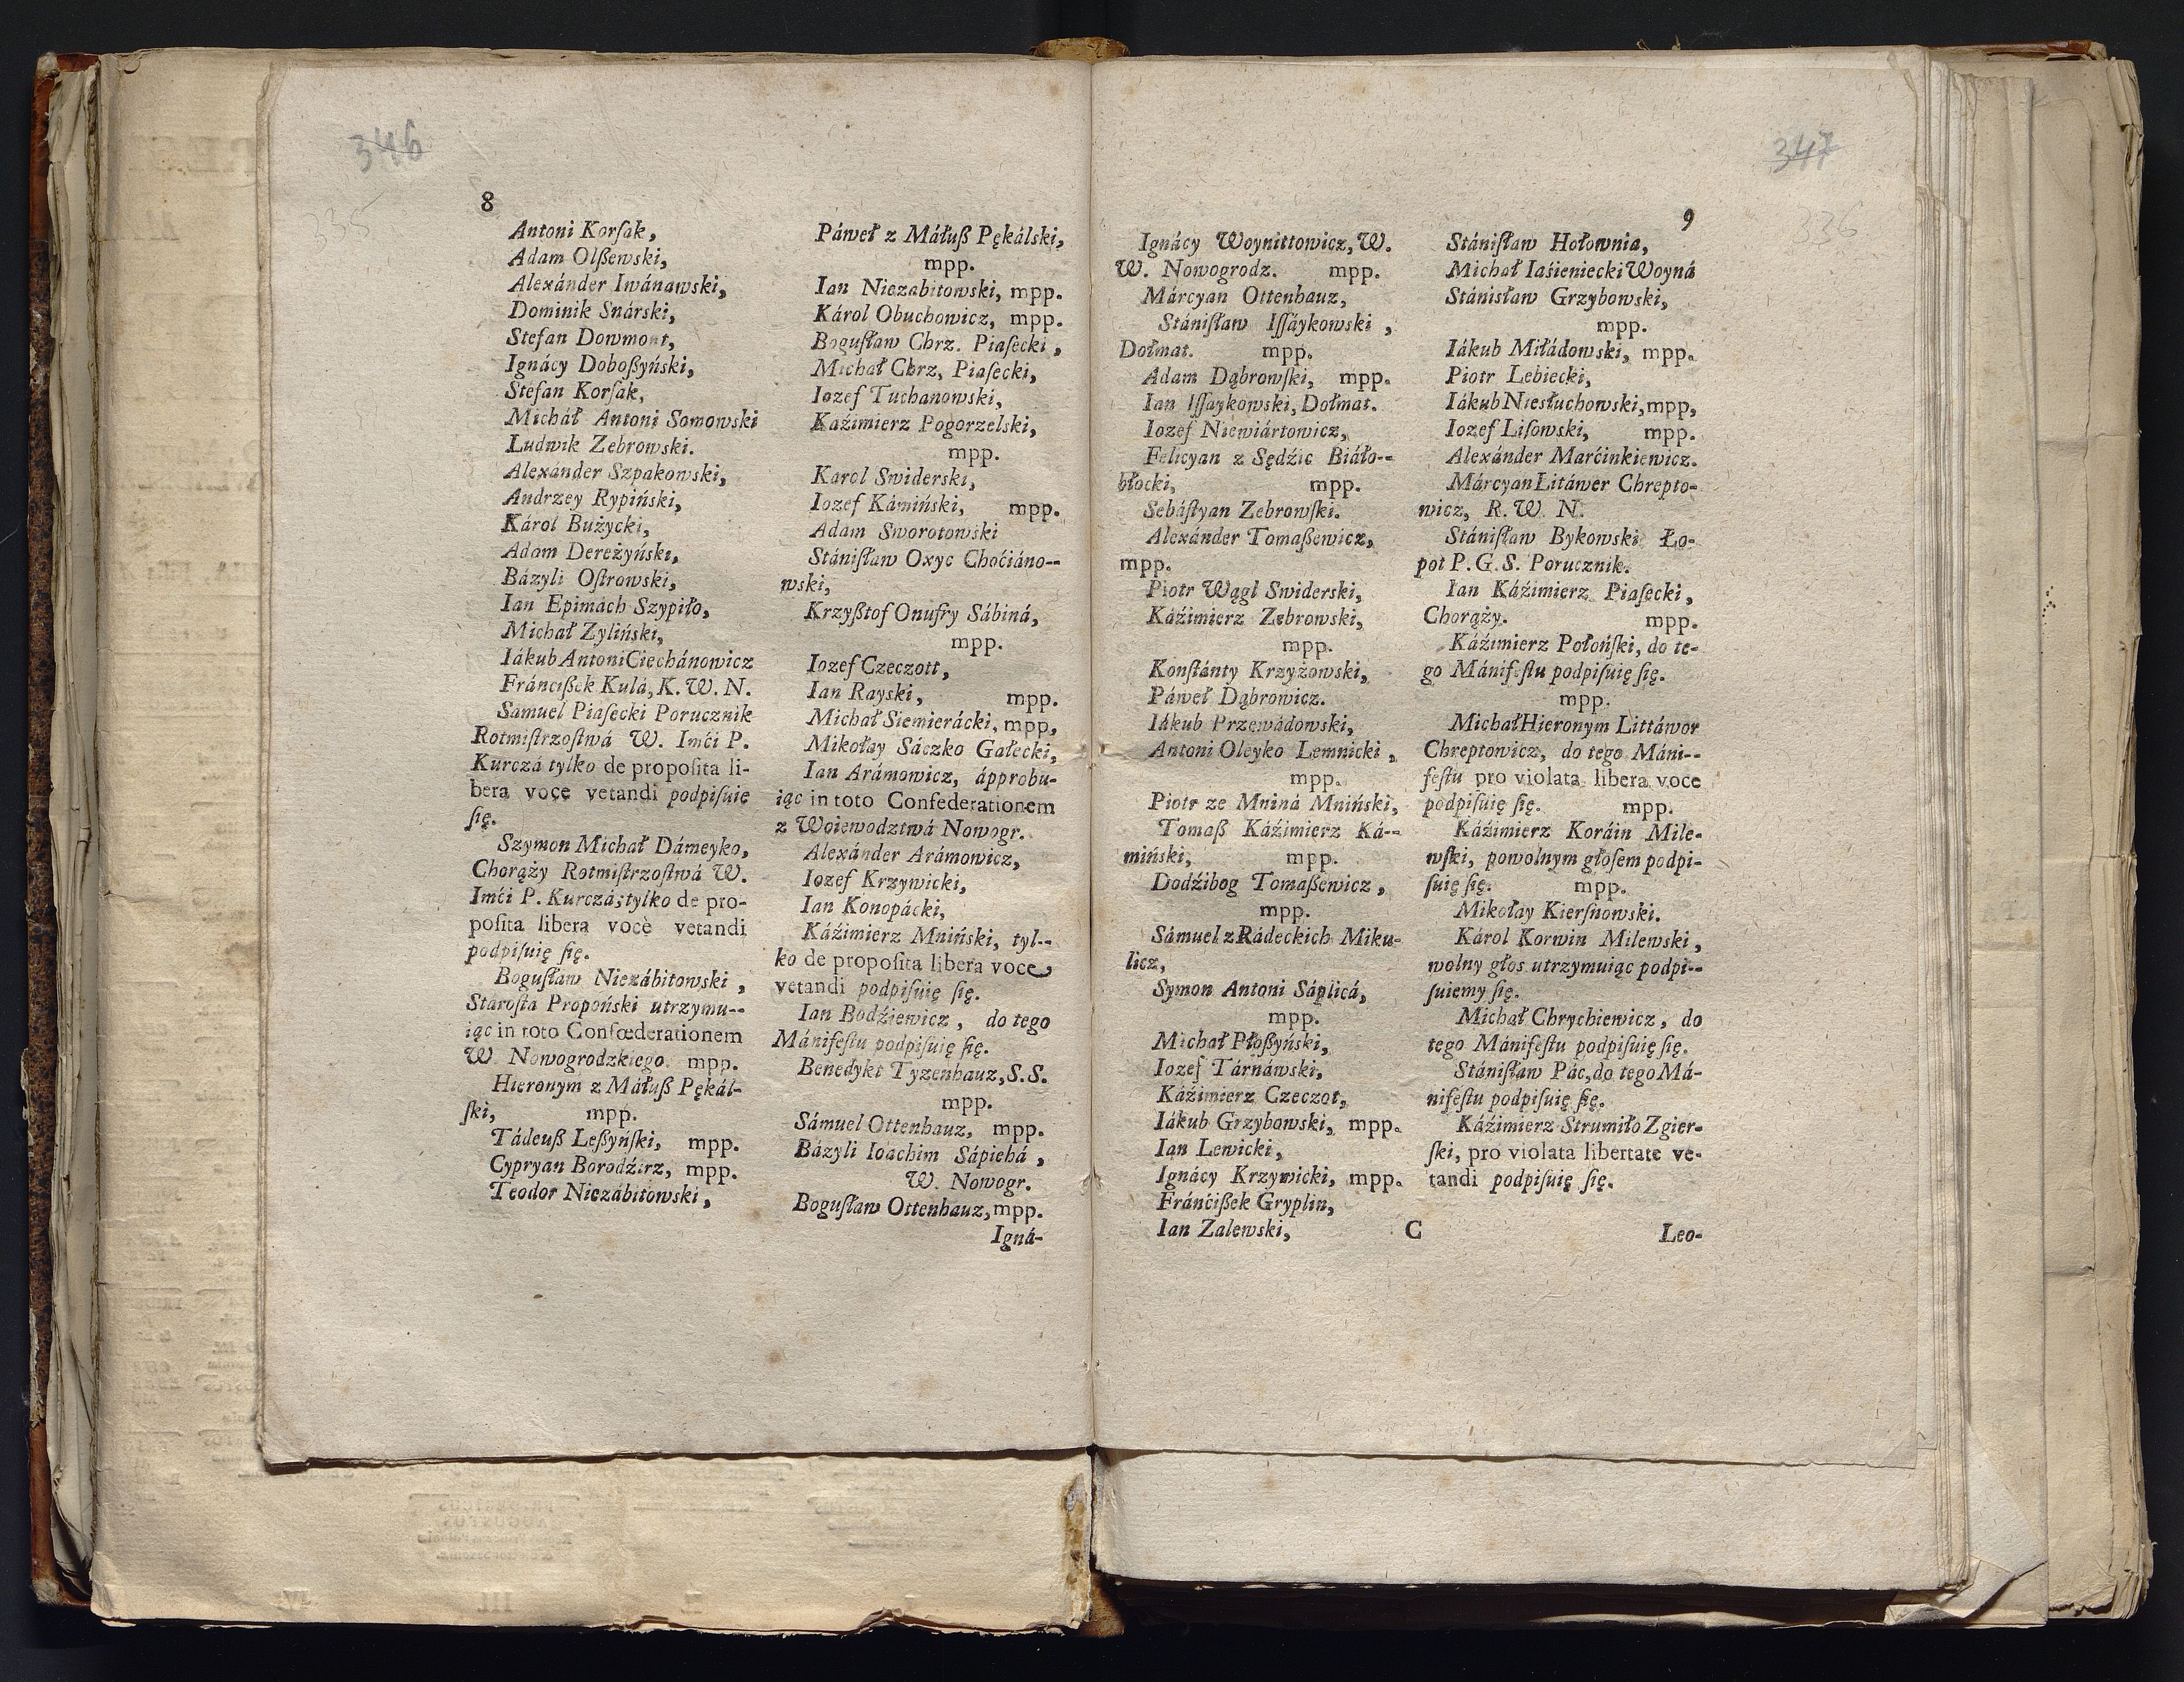 346
335
8
Antoni Korſak,
Adam Olßewski,
Alexánder Iwánawski,
Dominik Snárski,
Stefan Dowmont,
Ignácy Doboßyński,
Stefan Korſak,
Micháł Antoni Somowski
Ludwik Zebrowski.
Alexánder Szpakowski,
Andrzey Rypiński,
Károl Bużycki,
Adam Dereżyński,
Bázyli Oſtrowski,
Ian Epimách Szypiło,
Michał Zyliński,
Iákub Antoni Ciechánowicz
Fránćißek Kulá, K. W. N.
Samuel Piaſecki Porucznik
Rotmiſtrzoſtwá W. Imći P.
Kurczá tylko de propoſita li-
bera voce vetandi podpiſuie
ſię.
Szymon Michał Dámeyko,
Chorąży Rotmiſtrzoſtwá W.
Imći P. Kurczá; tylko de pro-
poſita libera vocè vetandi
podpiſuię ſię.
Boguſław Niezábitowski,
Staroſta Propoński utrzymu--
iąc in toto Confœderationem
W. Nowogrodzkiego. mpp.
Hieronym z Máłuß Pękál-
ſki, mpp.
Tádeuß Leßyńſki, mpp.
Cypryan Borodźirz, mpp.
Teodor Niezábitowski,
Páweł z Máłuß Pękálski,
mpp.
Ian Niezabitowski, mpp.
Károl Obuchowicz, mpp.
Boguſław Chrz. Piaſecki,
Michał Chrz, Piaſecki,
Iozef Tuchanowski,
Kaźimierz Pogorzelski,
mpp.
Karol Swiderski,
Iozef Kámiński, mpp.
Adam Sworotowski
Stániſław Oxyc Choćiáno--
wski,
Krzyßtof Onufry Sábiná,
mpp.
Iozef Czeczott,
Ian Rayski, mpp.
Michał Siemierácki, mpp,
Mikołay Sáczko Gałecki,
Ian Arámowicz, ápprobu-
iąc in toto Confederationem
z Woiewodztwá Nowogr.
Alexánder Arámowicz,
Iozef Krzywicki,
Ian Konopácki,
Káźimierz Mniński, tyl--
ko de propoſita libera voce,
vetandi podpiſuię ſię.
Ian Bodźiewicz, do tego
Mánifeſtu podpiſuię ſię.
Benedykt Tyzenhauz, S. S.
mpp.
Sámuel Ottenhauz, mpp.
Bázyli Ioáchim Sápiehá,
W. Nowogr.
Boguſław Ottenhauz, mpp.
Igná-
347
336
9
Ignácy Woynittowicz, W.
W. Nowogrodz. mpp.
Márcyan Ottenhauz,
Stániſław Iſſáykowski,
Dołmat. mpp.
Adam Dąbrowſki, mpp.
Ian Iſſaykowski, Dołmat.
Iozef Niewiártowicz,
Felicyan z Sędźic Biáło--
błocki, mpp.
Sebáſtyan Zebrowſki.
Alexánder Tomaßewicz,
mpp.
Piotr Wągl Swiderski,
Káźimierz Zebrowski,
mpp.
Konſtánty Krzyżowski,
Páweł Dąbrowicz.
Iákub Przewádowski,
Antoni Oleyko Lemnicki,
mpp.
Piotr ze Mniná Mniński,
Tomaß Káźimierz Ká--
miński, mpp.
Dodźibog Tomaßewicz,
mpp.
Sámuel z Rádeckich Miku-
licz,
Symon Antoni Sáplicá,
mpp.
Michał Płoßyński,
Iozef Tárnáwski,
Káźimierz Czeczot,
Iákub Grzybowski, mpp.
Ian Lewicki,
Ignácy Krzywicki, mpp.
Fránćißek Gryplin,
Ian Zalewski,
C
Stániſław Hołownia,
Michał Iaśieniecki Woyná
Stánisław Grzybowski,
mpp.
Iákub Miłádowski, mpp.
Piotr Lebiecki,
Iákub Niesłuchowski, mpp,
Iozef Liſowski, mpp.
Alexánder Marćinkiewicz.
Márcyan Litáwer Chrepto-
wicz, R. W. N.
Stániſław Bykowski Ło-
pot P. G. S. Porucznik.
Ian Káźimierz Piaſecki,
Chorąży. mpp.
Káźimierz Połońſki, do te-
go Mánifeſtu podpiſuię ſię.
mpp.
Michał Hieronym Littáwor
Chreptowicz, do tego Máni--
feſtu pro violata libera voce
podpiſuię ſię. mpp.
Káźimierz Koráin Mile-
wſki, powolnym głoſem podpi-
ſuię ſię. mpp.
Mikołay Kierſnowski.
Károl Korwin Milewski,
wolny głos utrzymuiąc podpi--
ſuiemy ſię.
Michał Chrychiewicz, do
tego Mánifeſtu podpiſuię ſię.
Stániſław Pác, do tego Má-
nifeſtu podpiſuię ſię.
Káźimierz Strumiło Zgier-
ſki, pro violata libertate ve-
tandi podpiſuię ſię.
Leo-